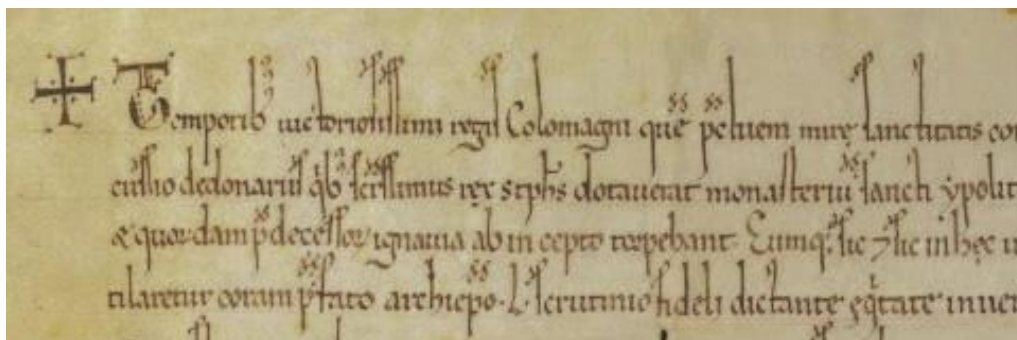 Temporib; uictoriosissimi regis Colomagni que
dedonariis qb; scissimus rex stphs dotauerat monasteriu sancti ypolit
& quordam pdecessor ignauia ab incepto torpebant. Eumq; sic 7 sic in hęc
tilaretur coram pfato archiepo. L. scrutinio fideli dictante ęqtate inuen